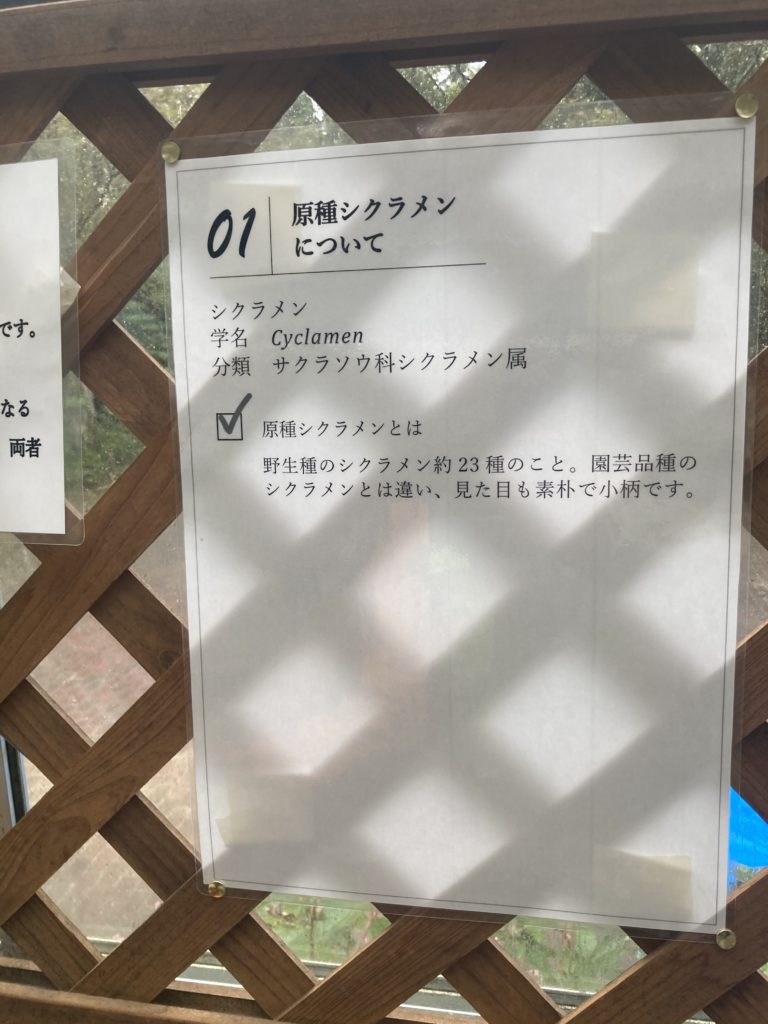 01
原種シクラメン
について
シクラメン
学名 Cyclamen
分類 サクラソウ科シクラメン属
原種シクラメンとは
野生種のシクラメン約23種のこと。園芸品種の
シクラメンとは違い、見た目も素朴で小柄です。
です。
なる
両者